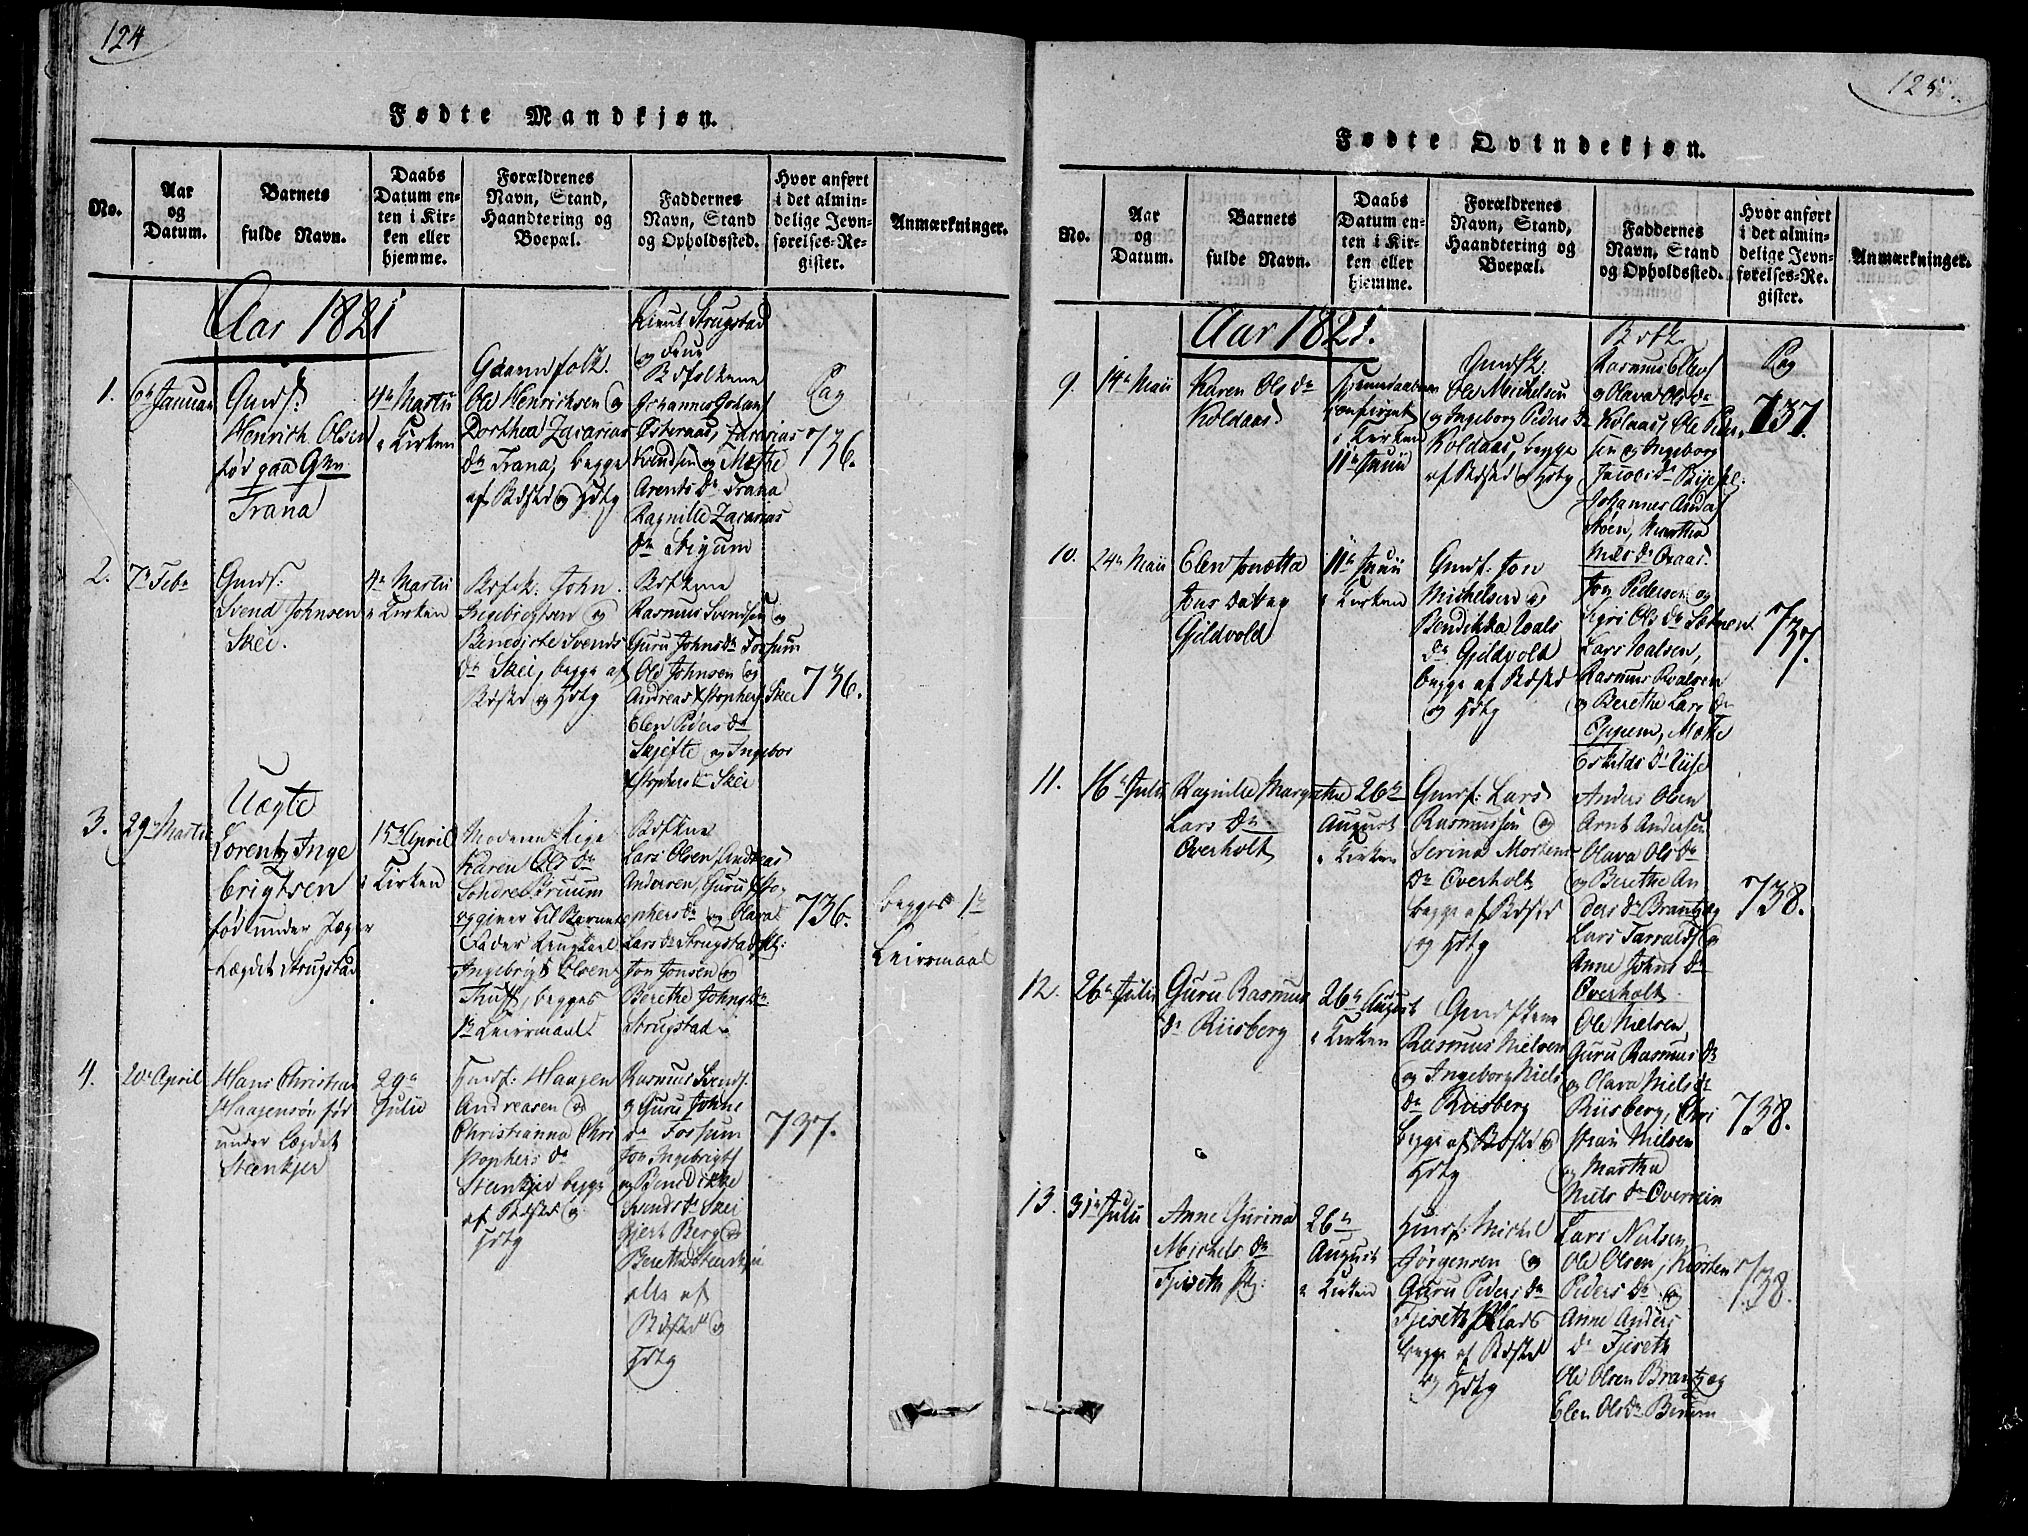 124
Fødte Mandkjøn.
No.
Aar
og
Datum.
Barnets
fulde Navn.
Daabs
Datum en-
ten i Kir-
ken eller
hjemme.
Forældrenes
Navn, Stand,
Haandtering og
Boepæl.
Faddernes
Navn, Stand
og Opholdssted.
Hvor anført
i det almin-
delige Jevn-
førelses-Re-
gister.
Anmærkninger.
Aar 1821
1.
6te Januar
Gmds:
Henrich Olsen
fød paa
Trana
4de Martii
i Kirken
Gaardmfolk.
Ole Henrichsen og
Dorthea Zacarias
Dr Trana, begge
af Bosted og Hdtg
Strugstad
og
Johannes Johans
Østeraas, Zacarias
og Mette
Arents Dr Trana
Ragnille Zacarias
Dr
Pag
736.
2.
7de Febr
Gmds:
Svend Johnsen
Skei.
4de Martii
i Kirken
John
Ingebrigtsen og
Benedicte Svends
Dr Skei, begge af
Bosted og Hdtg
Rasmus Svendsen og
Guru Johns Dr Fossum
Ole Johnsen og
Andreas Skei
Elen Peders Dr
Skjefte og Ingebor
Dr Skei
736.
3.
29de Martii
Uægte
Lorentz Inge
brigtsen
fød under Jæger
Lægdet Strugstad
15de April
i Kirken
Moderen Pige
Karen Ols Dr
Søndre Bruum
opgiver til Barnets
Fader Ungkarl
Ingebrigt Olsen
begges
1te Leiermaal
Lars Olsen, Andreas
Andersen, Guru
Dr og Olava
Lars Dr Strugstad
Jon Jonsen og
Berethe Johns Dr
Strugstad
736.
begges 1te
Leiermaal
4.
20de April
Hans Christian
Haagensøn fød
under Lægdet
Steenkjer
29de
Julii
Haagen
Andreasen og
Christianna Chri
stophers Dr
Steenkjer begge
af Bosted og
Hdtg
Rasmus Svends.
og Guru Johns
Dr Fossum
Jon Ingebrigts
og Bendikke
Svends Dr Skei
Gjert Berg og
Berethe Steenkjer
alle af
Bosted og
Hdtg
737.
125.
Fødte Qvindekjøn.
No.
Aar
og
Datum.
Barnets
fulde Navn.
Daabs
Datum en-
ten i Kir-
ken eller
hjemme.
Forældrenes
Navn, Stand,
Haandtering og
Boepæl.
Faddernes
Navn, Stand
og Opholdssted.
Hvor anført
i det almin-
delige Jevn-
førelses-Re-
gister.
Anmærkninger.
Aar 1821.
9.
14de Maii
Karen Ols Dr
Koldaas
Hjemmedaaben
confirmt
i Kirken
11te Junii
Ole Michelsen
og Ingeborg Peders Dr
Koldaas, begge
af Bosted og Hdtg
Rasmus Olsen
og Olava Ols Dr
Kolaas, Ole Peder
sen og Ingeborg
Jacobs Dr
Johannes
Martha
Nils Dr
Pag
737.
10.
24de Maii
Elen Jonetta
Jons Datter
Gjildvold
11te Junii
i Kirken
Gmds: Jon
Michelsen og
Bendikka
Dr Gjildvold
begge af Bosted
og Hdtg
Jon Pedersen og
Sigri Ols Dr
Lars
Rasmus
og Berethe Lars Dr
Eggem, Mette
Eskilds Dr
737.
11.
16de Julii
Ragnille Margrethe
Lars Dr
Overholt
26de
August
i Kirken
Gmds: Lars
Rasmussen og
Serina Mortens
Dr Overholt
begge af Bosted
og Hdtg
Anders Olsen
Arnt Andersen
Olava Ols Dr
og Berethe An
ders Dr Brantzeg
Lars Tarralds og
Anne Johns Dr
Overholt
738.
12.
26de Julii
Guru Rasmus
Dr Riisberg
26de August
i Kirken
Rasmus Nielsen
og Ingeborg Niels
Dr Riisberg
begge af Bosted og
Hdtg
Ole Nielsen
Guru Rasmus Dr
og Olava Niels Dr
Riisberg, Chri
stian Nielsen
og Martha
Niels Dr Overrein
738.
13.
31te Julii
Anne Gurina
Michels Dr
Fjeseth
26de
August
i Kirken
Michel
Jørgensen og
Guru Peders Dr
Fjeseth
begge af Bosted
og Hdtg
Lars Nielsen
Ole Olsen, Kirsten
Peders Dr og
Anne Anders
Dr Fjeseth
Ole Olsen Brantzeg
Elen Ols Dr
738.